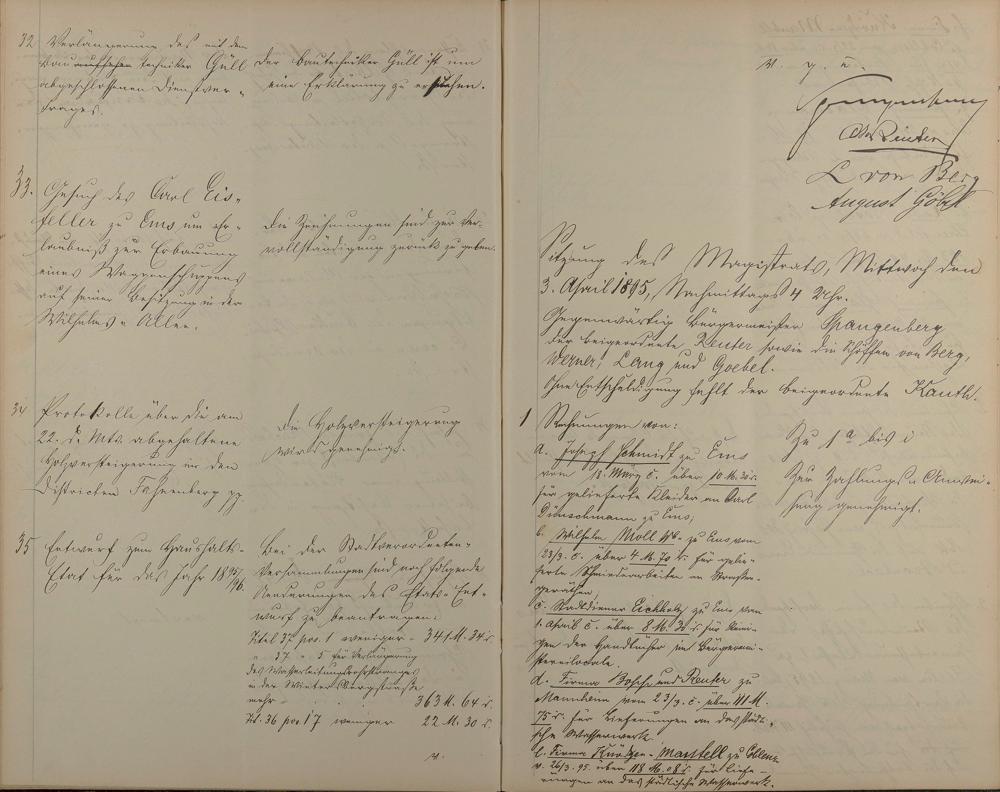 32 Verlängerung des mit dem
Bautechniker Güll
abgeschlossenen Dienstver-
trages.
Der Bautechniker Güll ist um
eine Erklärung zu ersuchen.
33. Gesuch des Carl Eis-
feller zu Ems um Er-
laubniß zur Erbauung
eines Wagenschuppens
auf seiner Besitzung in der
Wilhelms-Allee.
Die Zeichnungen sind zur Ver-
vollständigung zurück zu geben.
34 Protokolle über die am
22. d. Mts. abgehaltene
Holzversteigerung in den
Distrikten Fahnenberg pp
Die Holzversteigerung
wird genehmigt.
35 Entwurf zum Haushalts-
Etat für das Jahr 1895/96.
Bei der Stadtverordneten-
Versammlung sind noch folgende
Aenderungen des Etats-Ent-
wurf zu beantragen:
Titel 37 pos. 1 weniger - 341 M. 34
" 37 " 5 für Verlängerung
des Wasserleitungsrohrstranges
in der Wintersbergstraße
mehr 363 M. 64
Tit. 36 pos. 17 weniger 22 M. 30
v. g. u.
Spangenberg
Reuter
L von Berg
August Göbel
Sitzung des Magistrats, Mittwoch den
3. April 1895, Nachmittags 4 Uhr.
Gegenwärtig Bürgermeister Spangenberg
der Beigeordnete Reuter sowie die Schöffen von Berg,
Werner, Lang und Goebel.
Ohne Entschuldigung fehlt der Beigeordnete Kauth.
1 Rechnungen von:
a. Joseph Schmidt zu Ems
vom 18. März c. über 10 M. 30
für gelieferte Kleider an Carl
zu Ems,
b. Wilhelm Moll Wb. zu Ems vom
23/3. c. über 4 M. 70 für gelie-
ferte Schmiedearbeiten an Straßen-
geräthen,
c. Stadtdiener Eichholz zu Ems vom
1. April c. über 8 M. 30 für Reini-
gen der Handtücher im Bürgermei-
stereilocale.
d. Firma Bopp und Reuter zu
Mannheim vom 23/3. c. über 111 M.
75 für Lieferungen an das städti-
sche Wasserwerk.
e. Firma Mantell zu Coblenz
v. 26/3. 95 über 118 M. 08 für Liefe-
rungen an das städtische Wasserwerk.
Zu 1 a bis i
Zur Zahlungs-Anwei-
sung genehmigt.